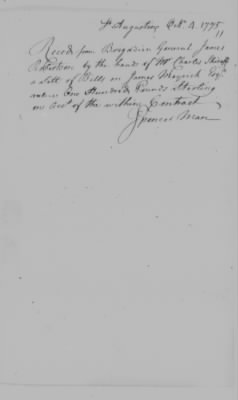 St Augustine Octr 4 1775
Receivd from Brigadier General James
Robertson by the hands of Mr Charles
a Sett of Bills on James Meyrick Esqr
One Hundred Pounds Sterling
on Acct of the within Contract
Spencer Man